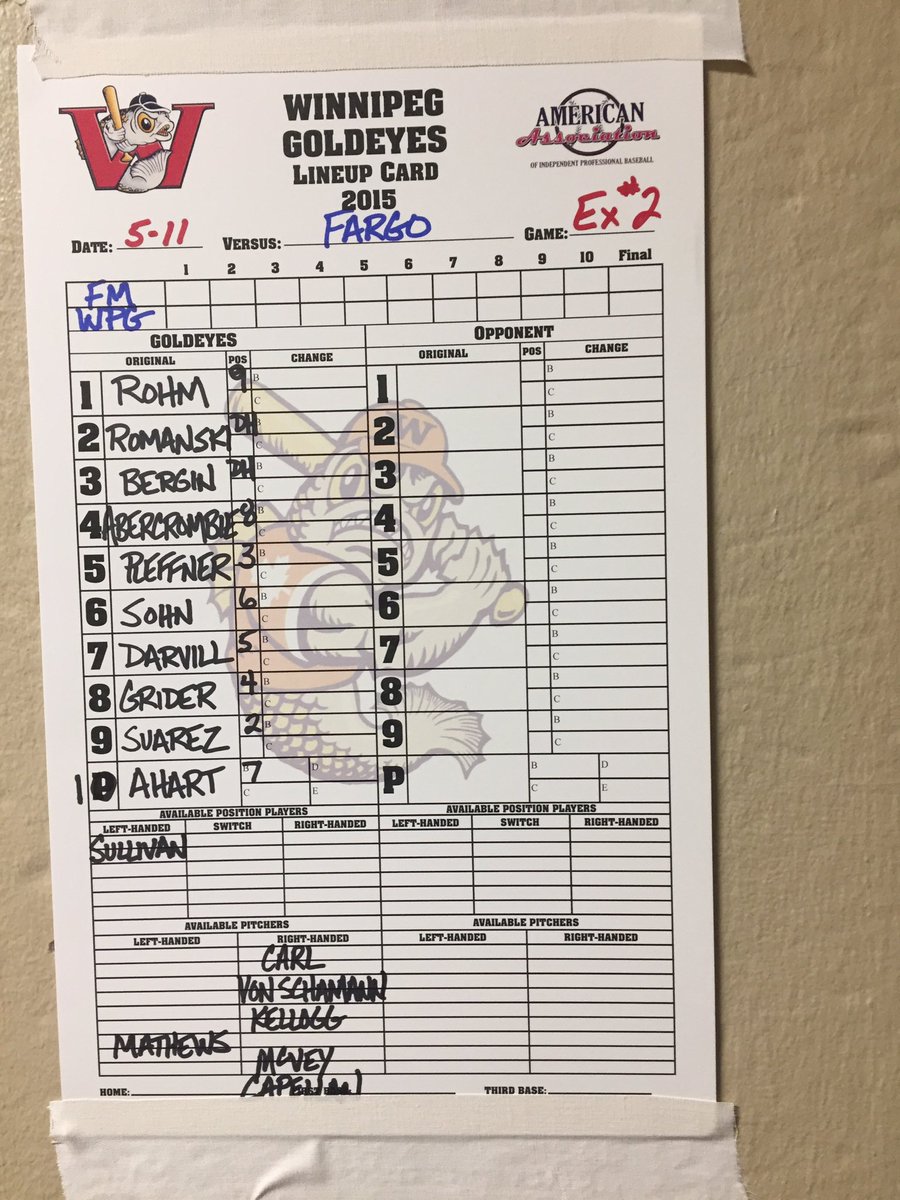 WINNIPEG
GOLDEYES
LINEUP CARD
2015
W
AMERICAN
Association
OF INDEPENDENT PROFESSIONAL BASEBALL
DATE: 5-11 VERSUS: FARGO GAME: Ex #2
1 2 3 4 5 6 7 8 9 10 Final
FM
WPG
GOLDEYES OPPONENT
ORIGINAL POS CHANGE ORIGINAL POS CHANGE
1 ROHM 9 B C 1 B C
2 ROMANSKI DH B C 2 B C
3 BERGIN DH B C 3 B C
4 ABERCROMBIE 8 B C 4 B C
5 PLEFFNER 3 B C 5 B C
6 SOHN 6 B C 6 B C
7 DARVILL 5 B C 7 B C
8 GRIDER 4 B C 8 B C
9 SUAREZ 2 B C 9 B C
10 AHART 7 B C D E P B C D E
AVAILABLE POSITION PLAYERS AVAILABLE POSITION PLAYERS
LEFT-HANDED SWITCH RIGHT-HANDED LEFT-HANDED SWITCH RIGHT-HANDED
SULLIVAN
AVAILABLE PITCHERS AVAILABLE PITCHERS
LEFT-HANDED RIGHT-HANDED LEFT-HANDED RIGHT-HANDED
CARL
VON SCHAMANN
KELLOGG
MATHEWS
MCVEY
HOME: THIRD BASE: